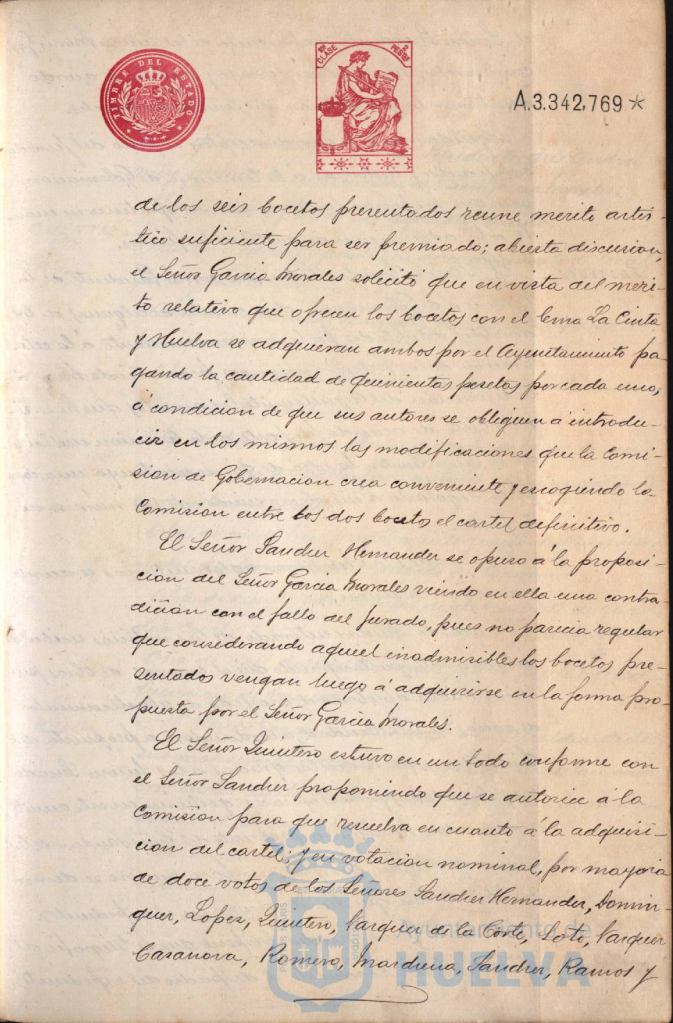 TIMBRE DEL ESTADO
CLASE
PESTAS
A.3.342,769*
de los seis bocetos presentados reune merito artis-
tico suficiente para ser premiado; abierta discusion,
el Señor Garcia Morales solicitó que en vista del meri-
to relativo que ofrecen los bocetos con el lema La Cinta
y Huelva se adquieran ambos por el Ayuntamiento pa-
gando la cantidad de quinientas pesetas por cada uno,
á condicion de que sus autores se obliguen á introdu-
cir en los mismos las modificaciones que la Comi-
sion de Gobernacion crea conveniente y escogiendo la
Comision entre los dos bocetos el cartel definitivo.
El Señor Sanchez Hernandez se opuso á la proposi-
cion del Señor Garcia Morales viendo en ella una contra-
dición con el fallo del Jurado, pues no parecia regular
que considerando aquel inadmisibles los bocetos pre-
sentados vengan luego á adquirirse en la forma pro-
puesta por el Señor Garcia Morales.
El Señor Quintero estuvo en un todo conforme con
el Señor Sanchez proponiendo que se autorice á la
Comision para que resuelva en cuanto á la adquisi-
cion del cartel; y en votacion nominal, por mayoria
de doce votos de los Señores Sanchez Hernandez, Domin-
guez, Lopez, Quintero, Vazquez de la Corte, Soto, Vazquez
Casanova, Romero, Sanchez, Ramos y
Ayuntamiento de
HUELVA